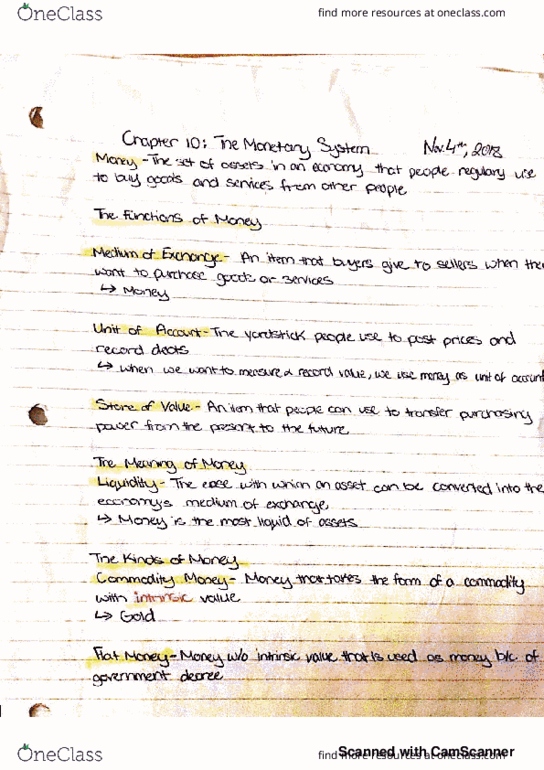 OneClass
find more resources at oneclass.com
Chapter 10: The Monetary System Nov. 4th, 2018
Money - The set of assets in an economy that people regulary use
to buy goods and services from other people
The Functions of Money
Medium of Exchange - An item that buyers give to sellers when the
want to purchase goods or services
↳ Money
Unit of Account - The yardstick people use to post prices and
record debts
↳ when we want to measure & record value, we use money as unit of account
Store of Value - An item that people can use to transfer purchasing
power from the present to the future
The Meaning of Money
Liquidity - The ease with which an asset can be converted into the
economy's medium of exchange
↳ Money is the most liquid of assets
The Kinds of Money
Commodity Money - Money that takes the form of a commodity
with intrinsic value
↳ Gold
Fiat Money - Money w/o intrinsic value that is used as money b/c. of
government decree
OneClass
find more resources at oneclass.com
Scanned with CamScanner